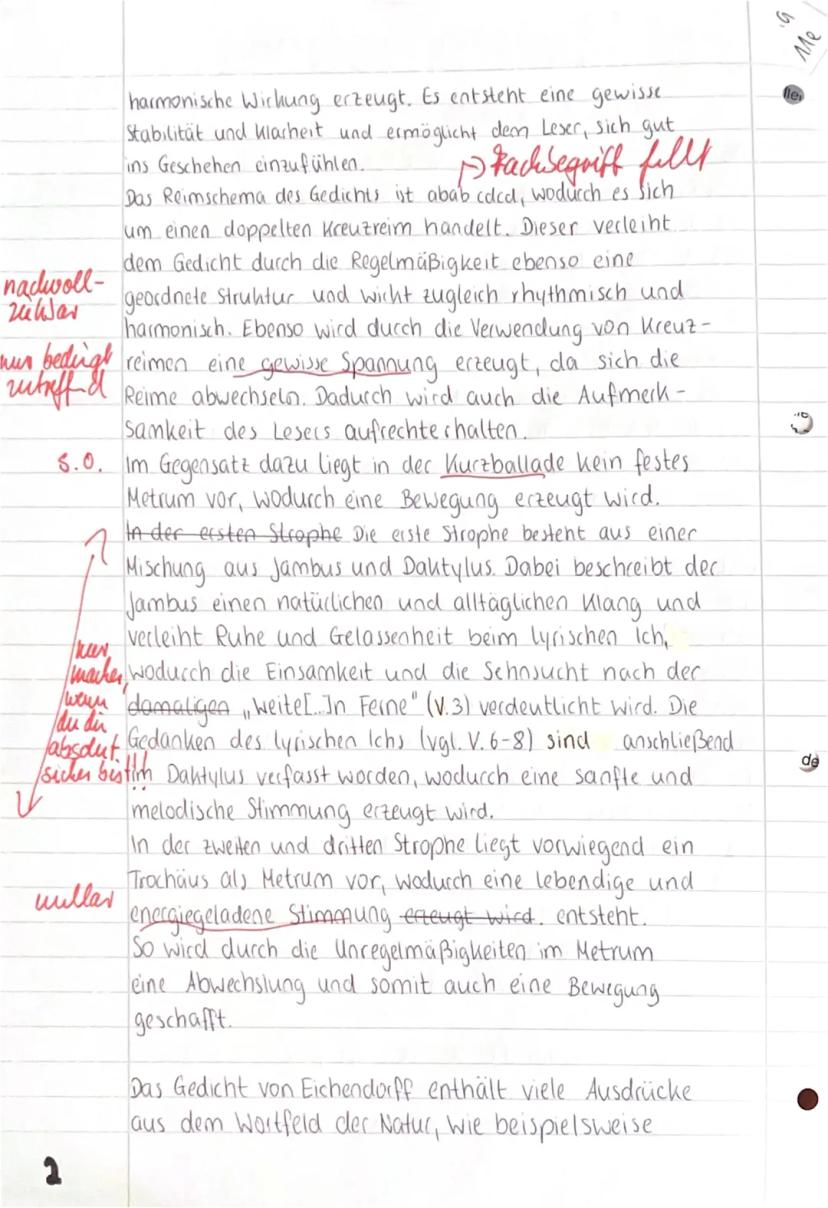 harmonische Wirkung erzeugt. Es entsteht eine gewisse
Stabilität und Klarheit und ermöglicht dem Leser, sich gut
ins Geschehen einzufühlen.
→ Fachbegriff fehlt
Das Reimschema des Gedichts ist abab cdcd, wodurch es sich
um einen doppelten Kreuzreim handelt. Dieser verleiht
dem Gedicht durch die Regelmäßigkeit ebenso eine
nachvoll-
geordnete Struktur und wirkt zugleich rhythmisch und
ziehbar
harmonisch. Ebenso wird durch die Verwendung von Kreuz-
nur bedingt
reimen eine gewisse Spannung erzeugt, da sich die
zutreffend
Reime abwechseln. Dadurch wird auch die Aufmerk-
samkeit des Lesers aufrechterhalten.
s.o.
Im Gegensatz dazu liegt in der Kurzballade kein festes
Metrum vor, wodurch eine Bewegung erzeugt wird.
In der ersten Strophe Die erste Strophe besteht aus einer
Mischung aus Jambus und Daktylus. Dabei beschreibt der
Jambus einen natürlichen und alltäglichen Klang und
verleiht Ruhe und Gelassenheit beim lyrischen Ich,
nur
machen,
wodurch die Einsamkeit und die Sehnsucht nach der
wenn
damaligen „Weite[..]n Ferne" (V.3) verdeutlicht wird. Die
du dir
absolut
Gedanken des lyrischen Ichs (vgl. V. 6-8) sind anschließend
sicher bist!!!
im Daktylus verfasst worden, wodurch eine sanfte und
melodische Stimmung erzeugt wird.
In der zweiten und dritten Strophe liegt vorwiegend ein
Trochäus als Metrum vor, wodurch eine lebendige und
unklar
energiegeladene Stimmung erzeugt wird. entsteht.
So wird durch die Unregelmäßigkeiten im Metrum
eine Abwechslung und somit auch eine Bewegung
geschafft.
Das Gedicht von Eichendorff enthält viele Ausdrücke
aus dem Wortfeld der Natur, wie beispielsweise
2